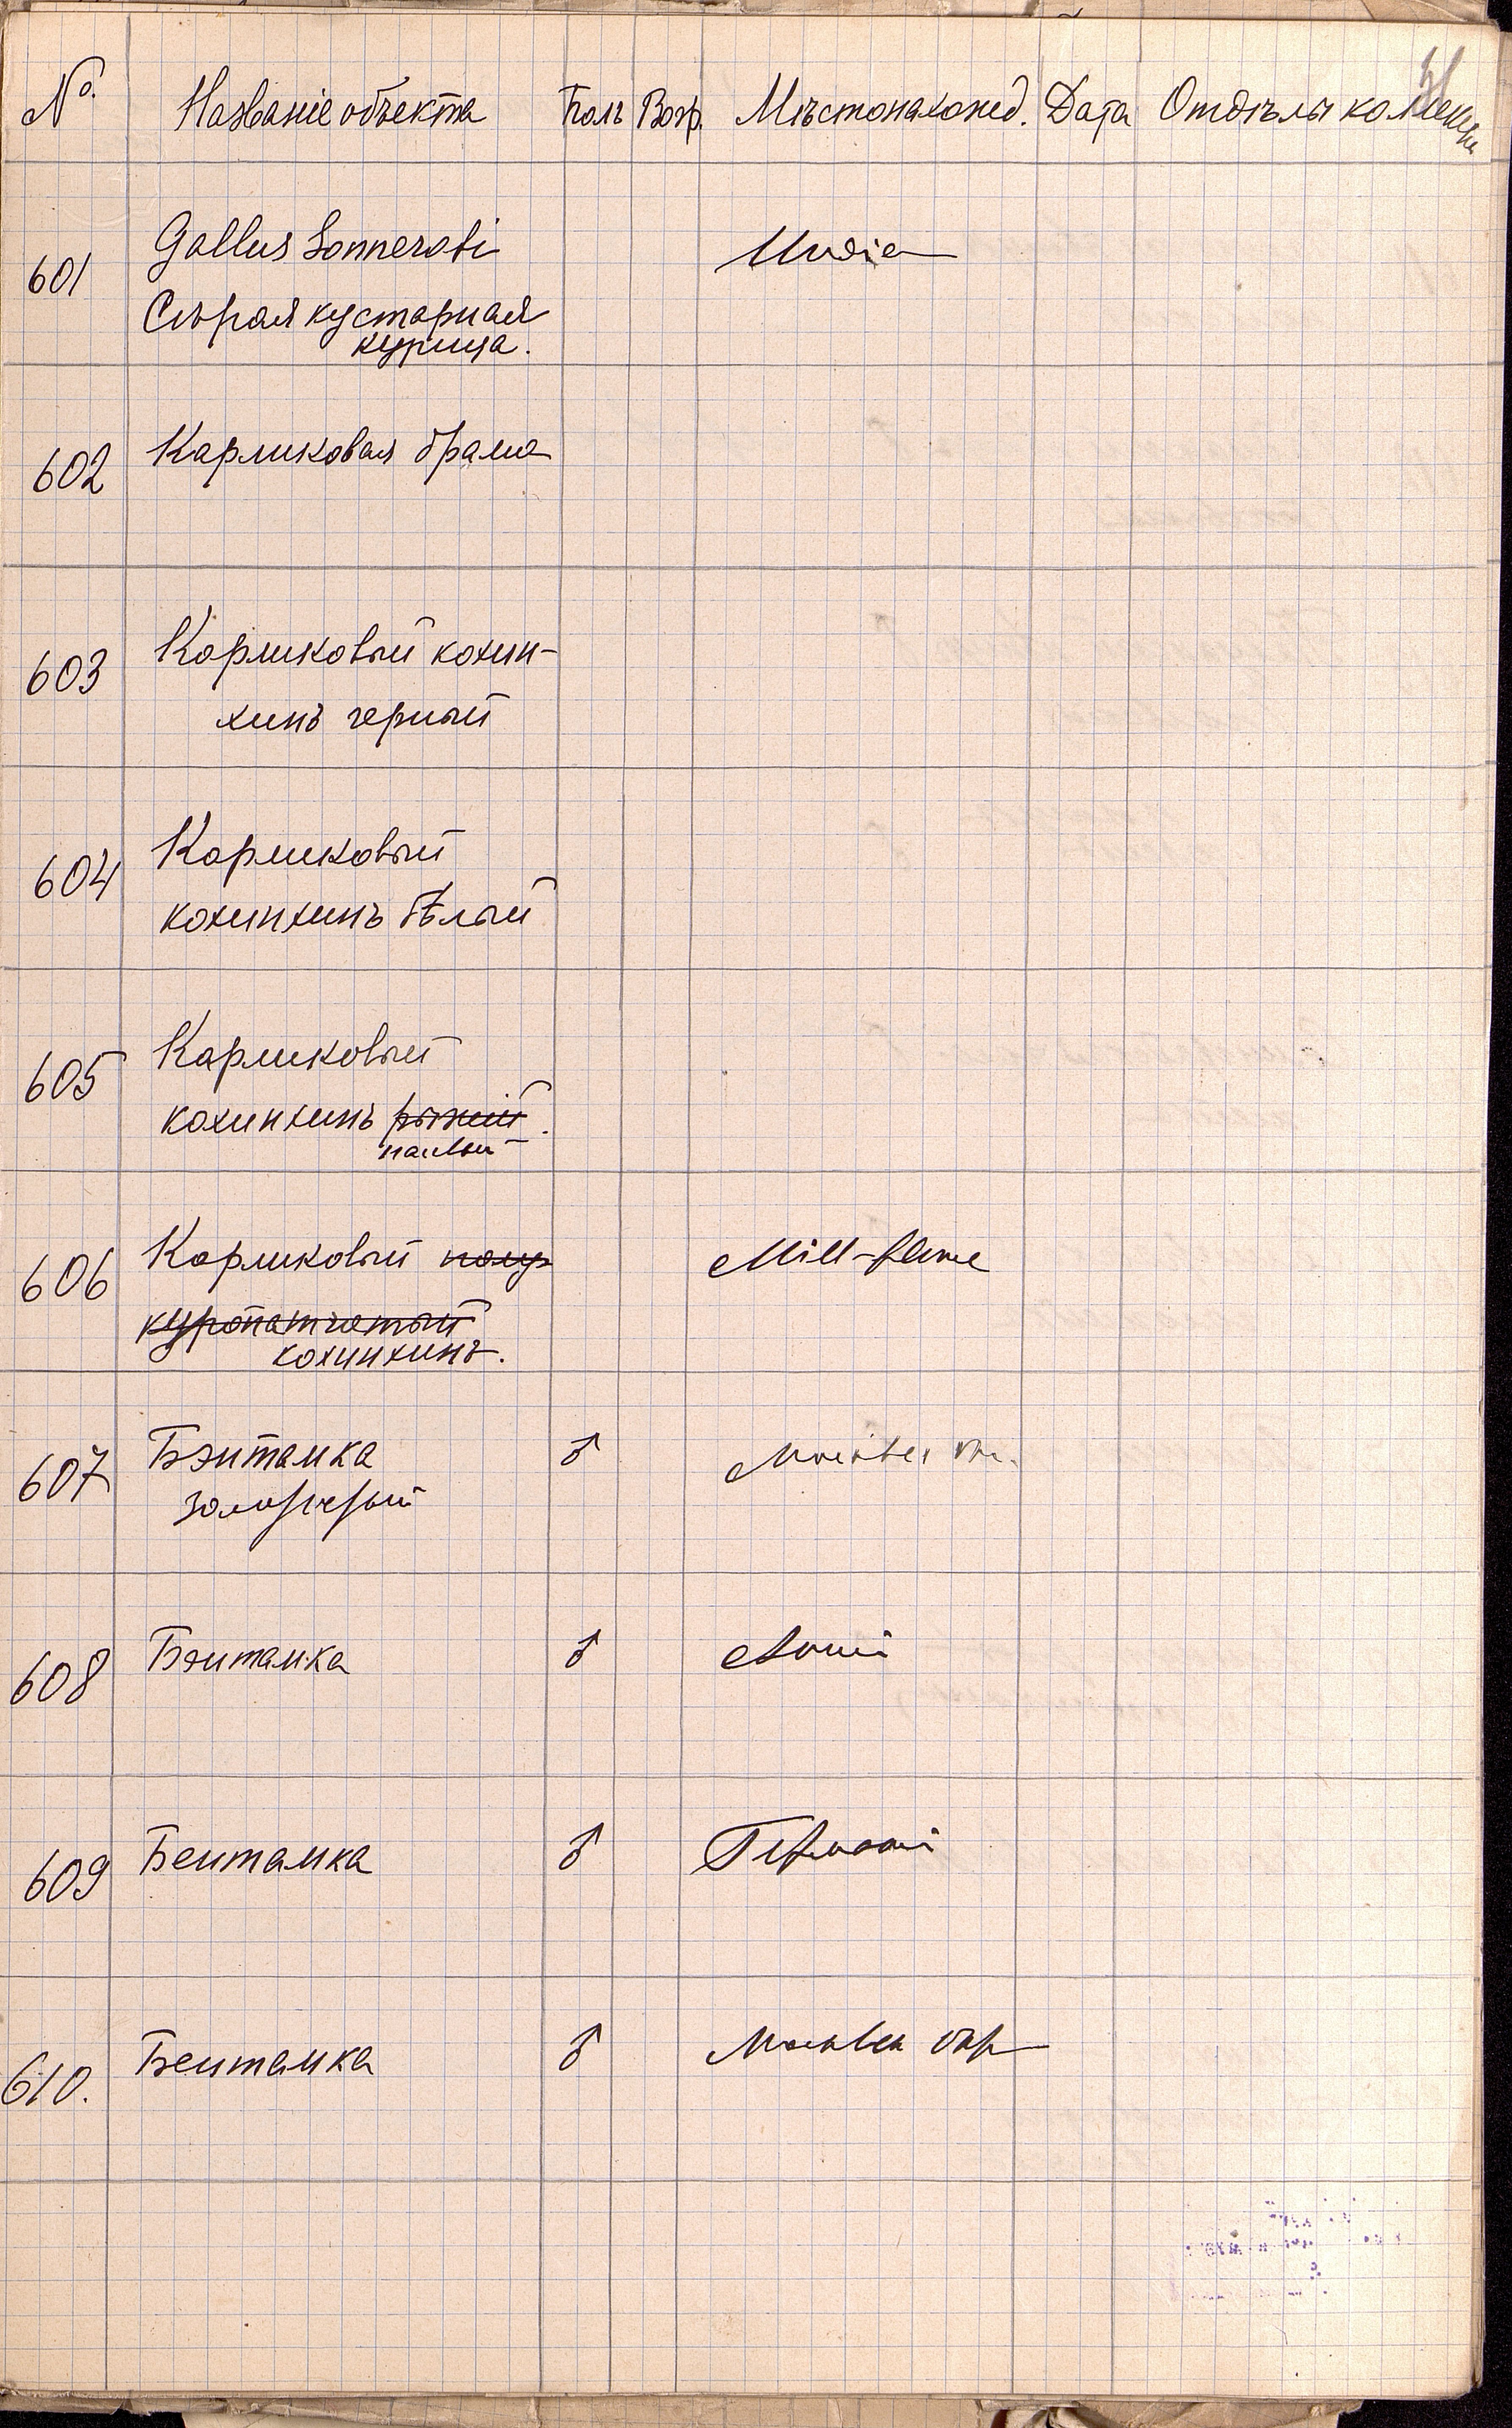 № Названіе объекта Полъ Возр. Мѣстонахожд. Дата Отдѣлы коллекціи
601 Gallus Sonnerati Индіа
Сѣрая кустарная
курица.
602 Карликовая брама
603 Карликовый кохин-
хинъ черный
604 Карликовый
кохинхинъ бѣлый
605 Карликовый
кохинхинъ рыжій.
палевый
606 Карликовый Mill-fleure
куропатчатый
кохинхинъ.
607 Бэнтамка ♂
золотистый
608 Бэнтамка ♂
609 Бентамка ♂
610. Бентамка ♂